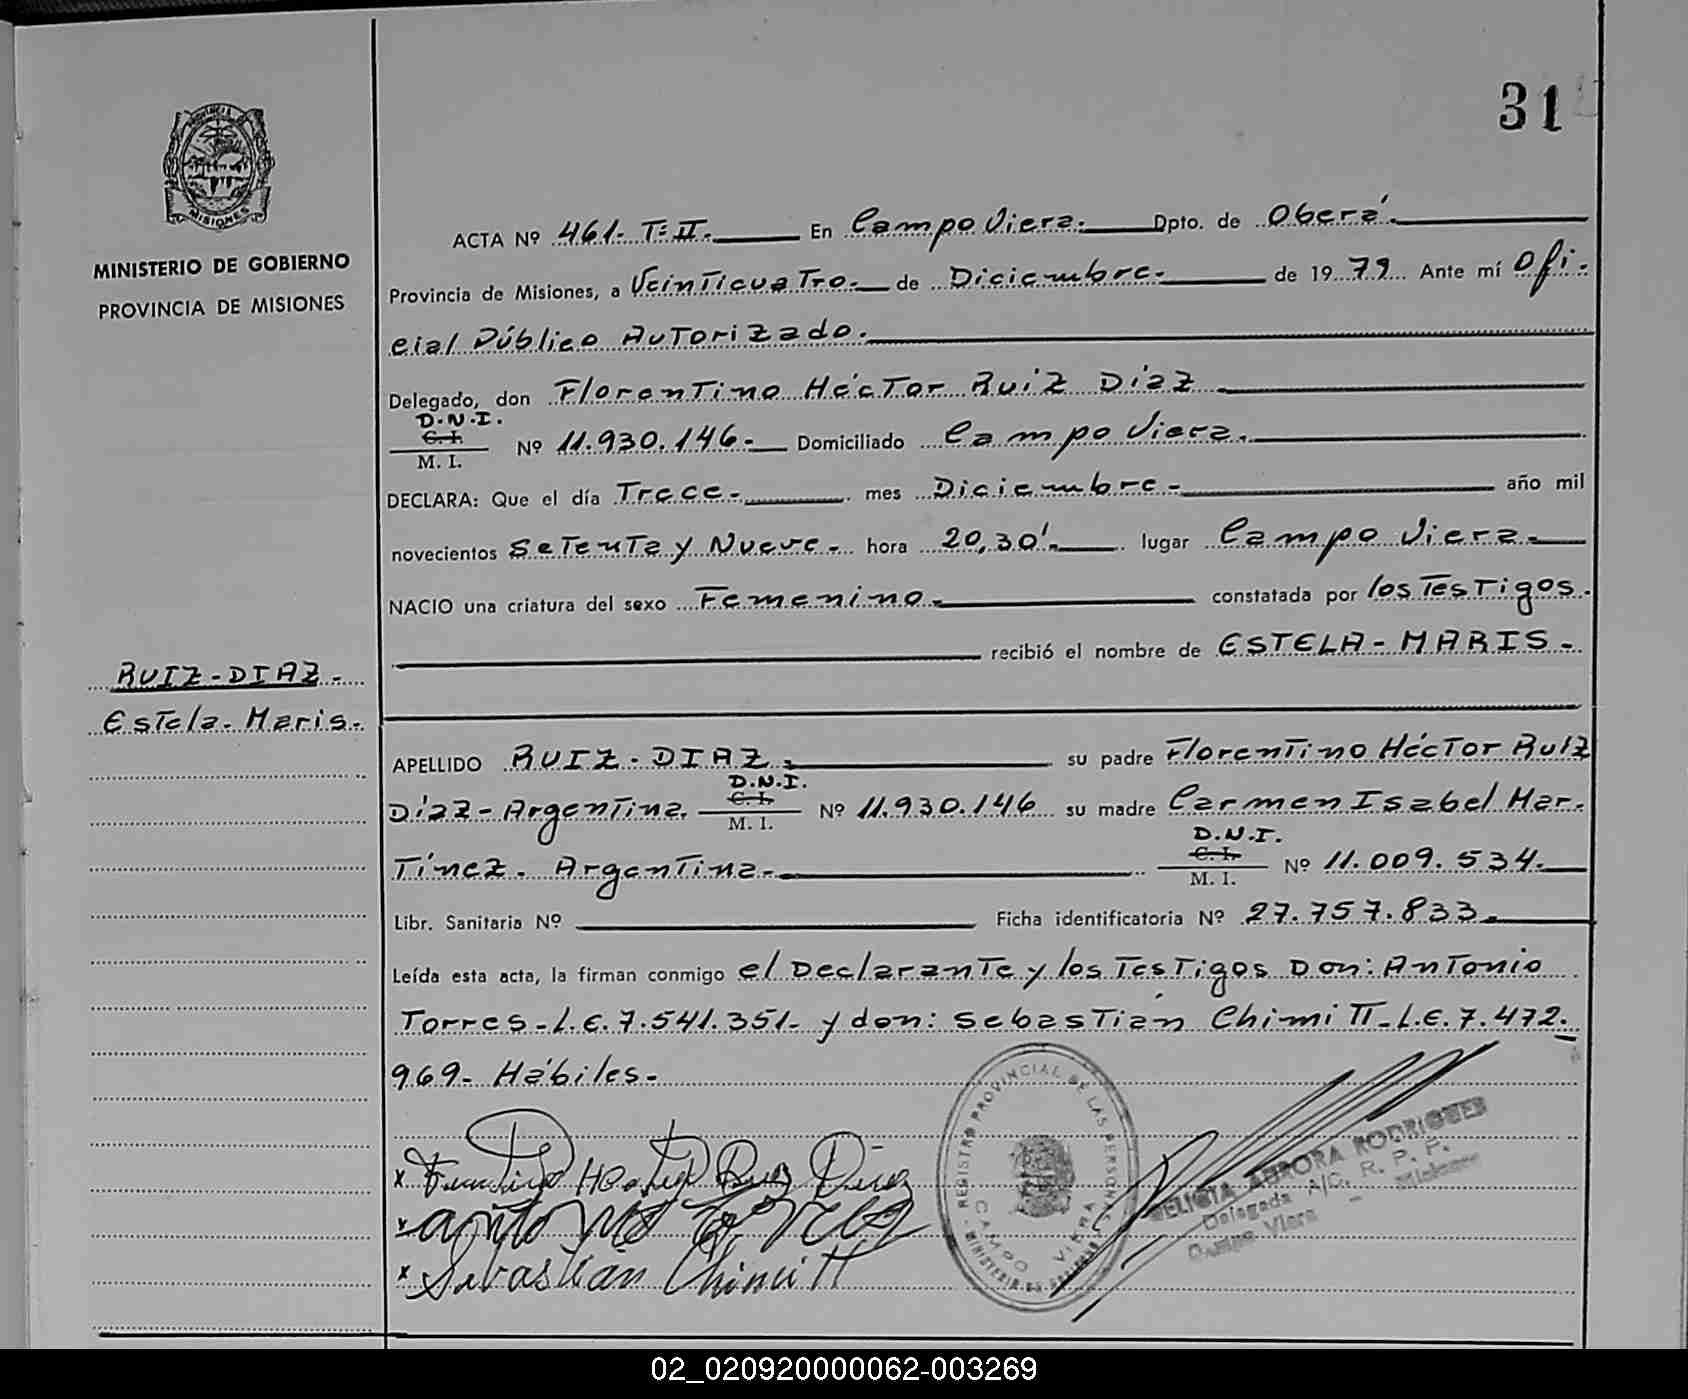 31
PROVINCIA DE
MISIONES
MINISTERIO DE GOBIERNO
PROVINCIA DE MISIONES
RUIZ-DIAZ.-
Estela-Maris.-
ACTA Nº 461- T:II.- En Campo Viera.- Dpto. de Oberá.-
Provincia de Misiones, a Veinticuatro.- de Diciembre.- de 1979. Ante mí Ofi-
cial Público Autorizado.
Delegado, don Florentino Héctor Ruíz Díaz
D.N.I.
C.I.
M. I. Nº 11.930.146.- Domiciliado Campo Viera.
DECLARA: Que el día Trece.- mes Diciembre.- año mil
novecientos Setenta y Nueve.- hora 20,30'.- lugar Campo Viera.-
NACIO una criatura del sexo Femenino.- constatada por los Testigos.
recibió el nombre de ESTELA-MARIS.-
APELLIDO RUIZ-DIAZ.- su padre Florentino Héctor Ruíz
D.N.I.
C.I.
Díaz-Argentina. M. I. Nº 11.930.146 su madre Carmen Isabel Mar-
D.N.I.
C.I.
Tínez. Argentina.- M. I. Nº 11.009.534.-
Libr. Sanitaria Nº Ficha identificatoria Nº 27.757.833.-
Leída esta acta, la firman conmigo el Declarante y los Testigos Don: Antonio
Torres-L.E.7.541.351- y don: Sebastián Chimitt-L.E.7.472.
969- Hábiles.-
REGISTRO PROVINCIAL DE LAS PERSONAS
CAMPO VIERA
x Florentino Hector Ruiz Diaz
x antonio Torres
x Sebastian Chimitt
AURORA RODRIGUES
Delegada A/C. R. P. P.
Campo Viera - Misiones
02_020920000062-003269